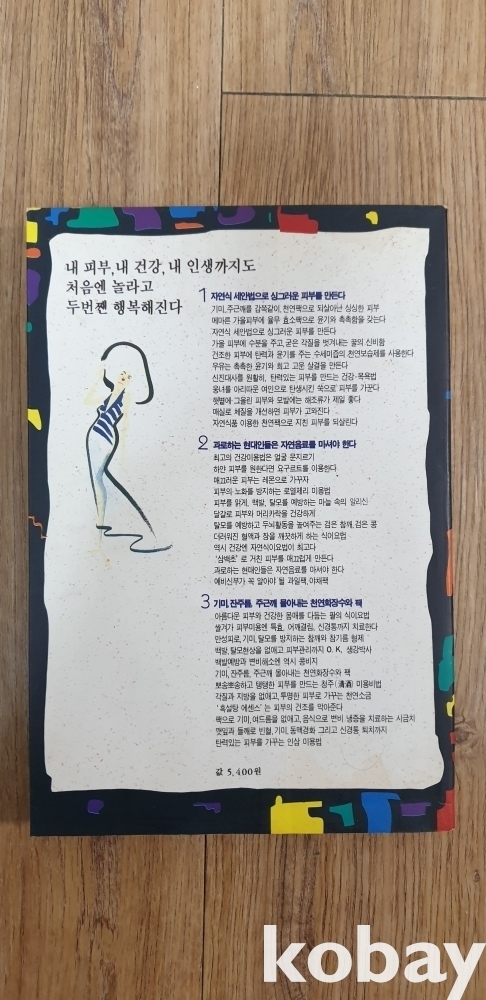 내 피부, 내 건강, 내 인생까지도
처음엔 놀라고
두번짼 행복해진다
1 자연식 세안법으로 싱그러운 피부를 만든다
기미, 주근깨를 감쪽같이, 천연팩으로 되살아난 싱싱한 피부
메마른 가을피부에 율무 효소팩으로 윤기와 촉촉함을 갖는다
자연식 세안법으로 싱그러운 피부를 만든다
가을 피부에 수분을 주고, 굳은 각질을 벗겨내는 꿀의 신비함
건조한 피부에 탄력과 윤기를 주는 수세미즙의 천연보습제를 사용한다
우유는 촉촉한, 윤기와 희고 고운 살결을 만든다
신진대사를 원활히, 탄력있는 피부를 만드는 건강·목욕법
웅녀를 아리따운 여인으로 탄생시킨 쑥으로 피부를 가꾼다
햇볕에 그을린 피부와 모발에는 해조류가 제일 좋다
매실로 체질을 개선하면 피부가 고와진다
자연식품 이용한 천연팩으로 지친 피부를 되살린다
2 과로하는 현대인들은 자연음료를 마셔야 한다
최고의 건강미용법은 얼굴 문지르기
하얀 피부를 원한다면 요구르트를 이용한다
매끄러운 피부는 레몬으로 가꾸자
피부의 노화를 방지하는 로열제리 미용법
피부를 맑게, 백발, 탈모를 예방하는 마늘 속의 알리신
달걀로 피부와 머리카락을 건강하게
탈모를 예방하고 두뇌활동을 높여주는 검은 참깨, 검은 콩
더러워진 혈액과 장을 깨끗하게 하는 식이요법
역시 건강엔 자연식이요법이 최고다
'삼백초' 로 거친 피부를 매끄럽게 만든다
과로하는 현대인들은 자연음료를 마셔야 한다
예비신부가 꼭 알아야 될 과일팩, 야채팩
3 기미, 잔주름, 주근깨 몰아내는 천연화장수와 팩
아름다운 피부와 건강한 몸매를 다듬는 팥의 식이요법
쌀겨가 피부미용엔 특효, 어깨결림, 신경통까지 치료한다
만성피로, 기미, 탈모를 방지하는 참깨와 참기름 형제
백발, 탈모현상을 없애고 피부관리까지 O. K. 생강박사
백발예방과 변비해소엔 역시 콩비지
기미, 잔주름, 주근깨 몰아내는 천연화장수와 팩
뽀송뽀송하고 탱탱한 피부를 만드는 청주(淸酒) 미용비법
각질과 지방을 없애고, 투명한 피부로 가꾸는 천연소금
'흑설탕 에센스' 는 피부의 건조를 막아준다
팩으로 기미, 여드름을 없애고, 음식으로 변비 냉증을 치료하는 시금치
깻잎과 들깨로 빈혈, 기미, 동맥경화 그리고 신경통 퇴치까지
탄력있는 피부를 가꾸는 인삼 미용법
값 5,400원
kobay